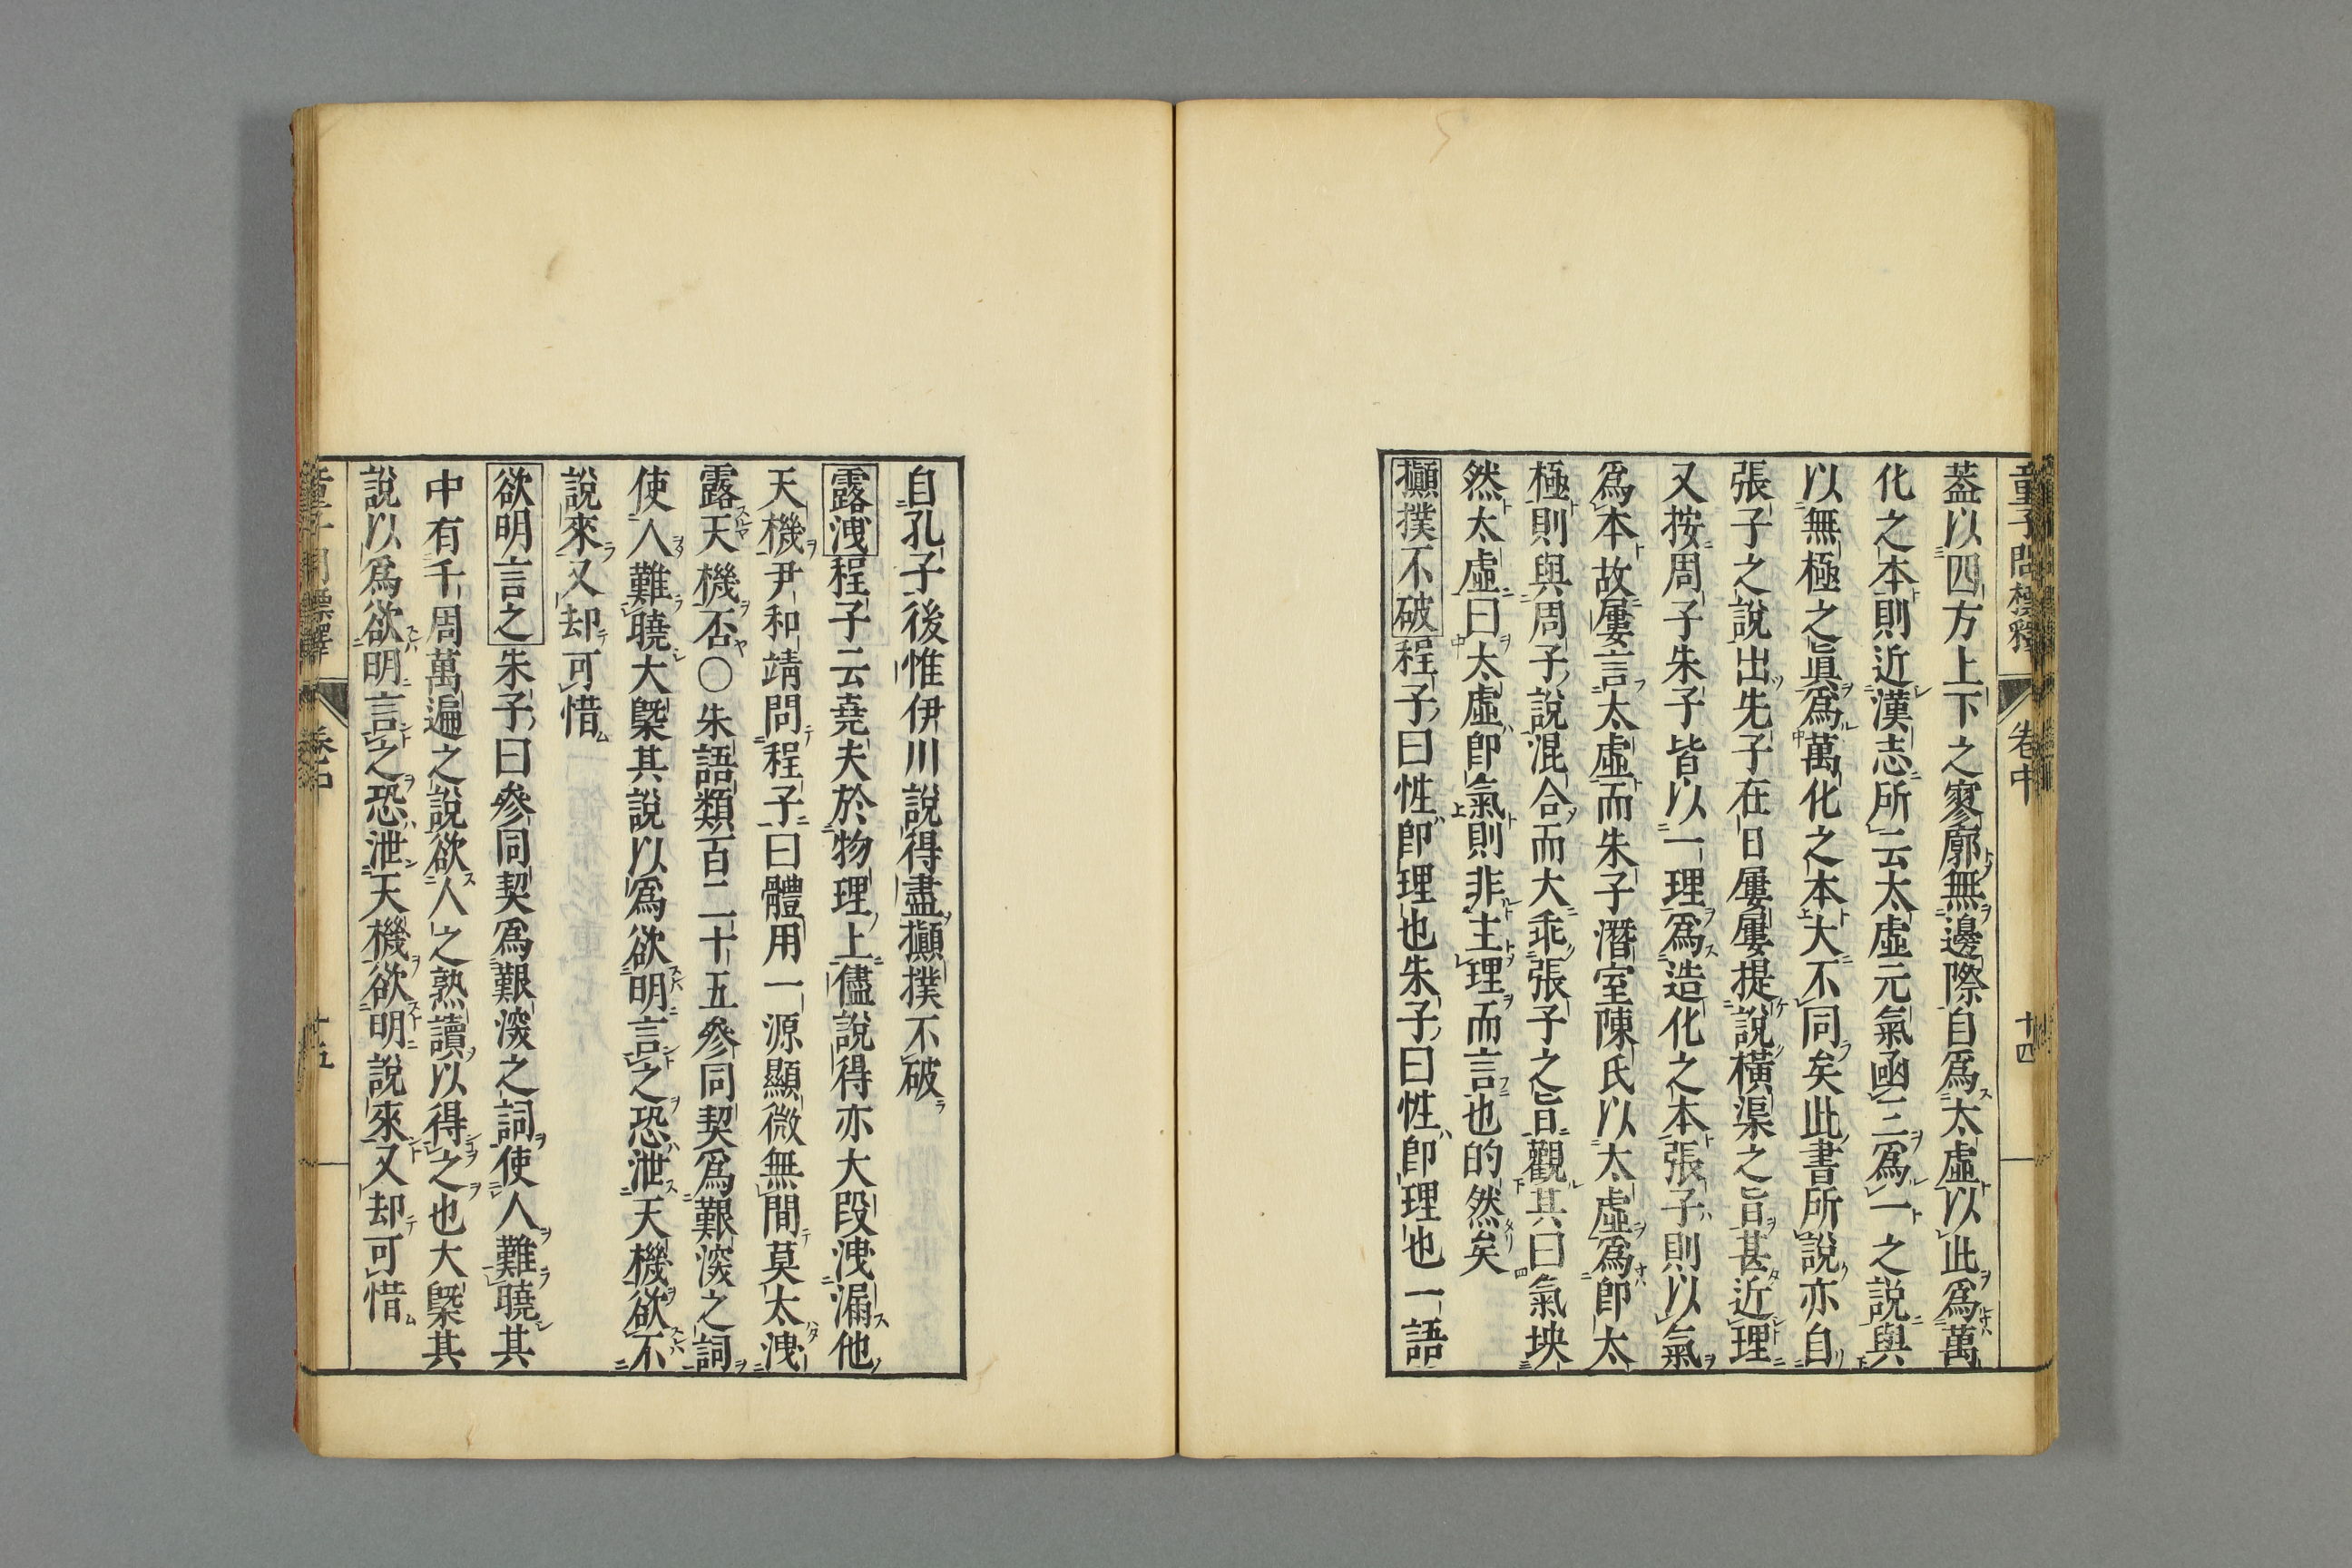 童子問標釋 卷中 十四
葢以四方上下之寥廓無邊際自爲太虛以此爲萬
化之本則近漢志所云太虛元氣函三爲一之說與
以無極之眞爲萬化之本大不同矣此書所說亦自
張子之說出先子在日屢屢提說橫渠之旨甚近理
又按周子朱子皆以一理爲造化之本張子則以氣
爲本故屢言太虛而朱子潛室陳氏以太虛爲卽太
極則與周子說混合而大乖張子之旨觀其曰氣坱
然太虛曰太虛卽氣則非主理而言也的然矣
攧撲不破程子曰性卽理也朱子曰性卽理也一語
自孔子後惟伊川說得盡攧撲不破
露洩程子云堯夫於物理上儘說得亦大段洩漏他
天機尹和靖問程子曰體用一源顯微無間莫太洩
露天機否〇朱語類百二十五參同契爲艱深之詞
使人難曉大槩其說以爲欲明言之恐泄天機欲不
說來又却可惜
欲明言之朱子曰參同契爲艱深之詞使人難曉其
中有千周萬遍之說欲人之熟讀以得之也大槩其
說以爲欲明言之恐泄天機欲明說來又却可惜
童子問標釋 卷中 十五